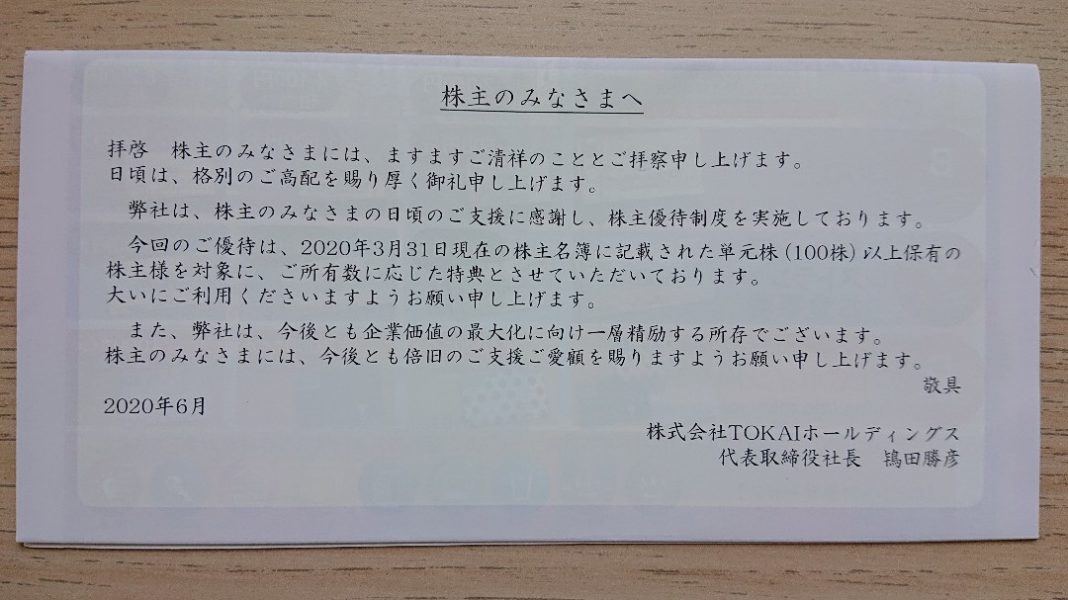 株主のみなさまへ
拝啓　株主のみなさまには、ますますご清祥のこととご拝察申し上げます。
日頃は、格別のご高配を賜り厚く御礼申し上げます。
弊社は、株主のみなさまの日頃のご支援に感謝し、株主優待制度を実施しております。
今回のご優待は、2020年3月31日現在の株主名簿に記載された単元株(100株)以上保有の
株主様を対象に、ご所有数に応じた特典とさせていただいております。
大いにご利用くださいますようお願い申し上げます。
また、弊社は、今後とも企業価値の最大化に向け一層精励する所存でございます。
株主のみなさまには、今後とも倍旧のご支援ご愛顧を賜りますようお願い申し上げます。
敬具
2020年6月
株式会社TOKAIホールディングス
代表取締役社長　鴇田勝彦